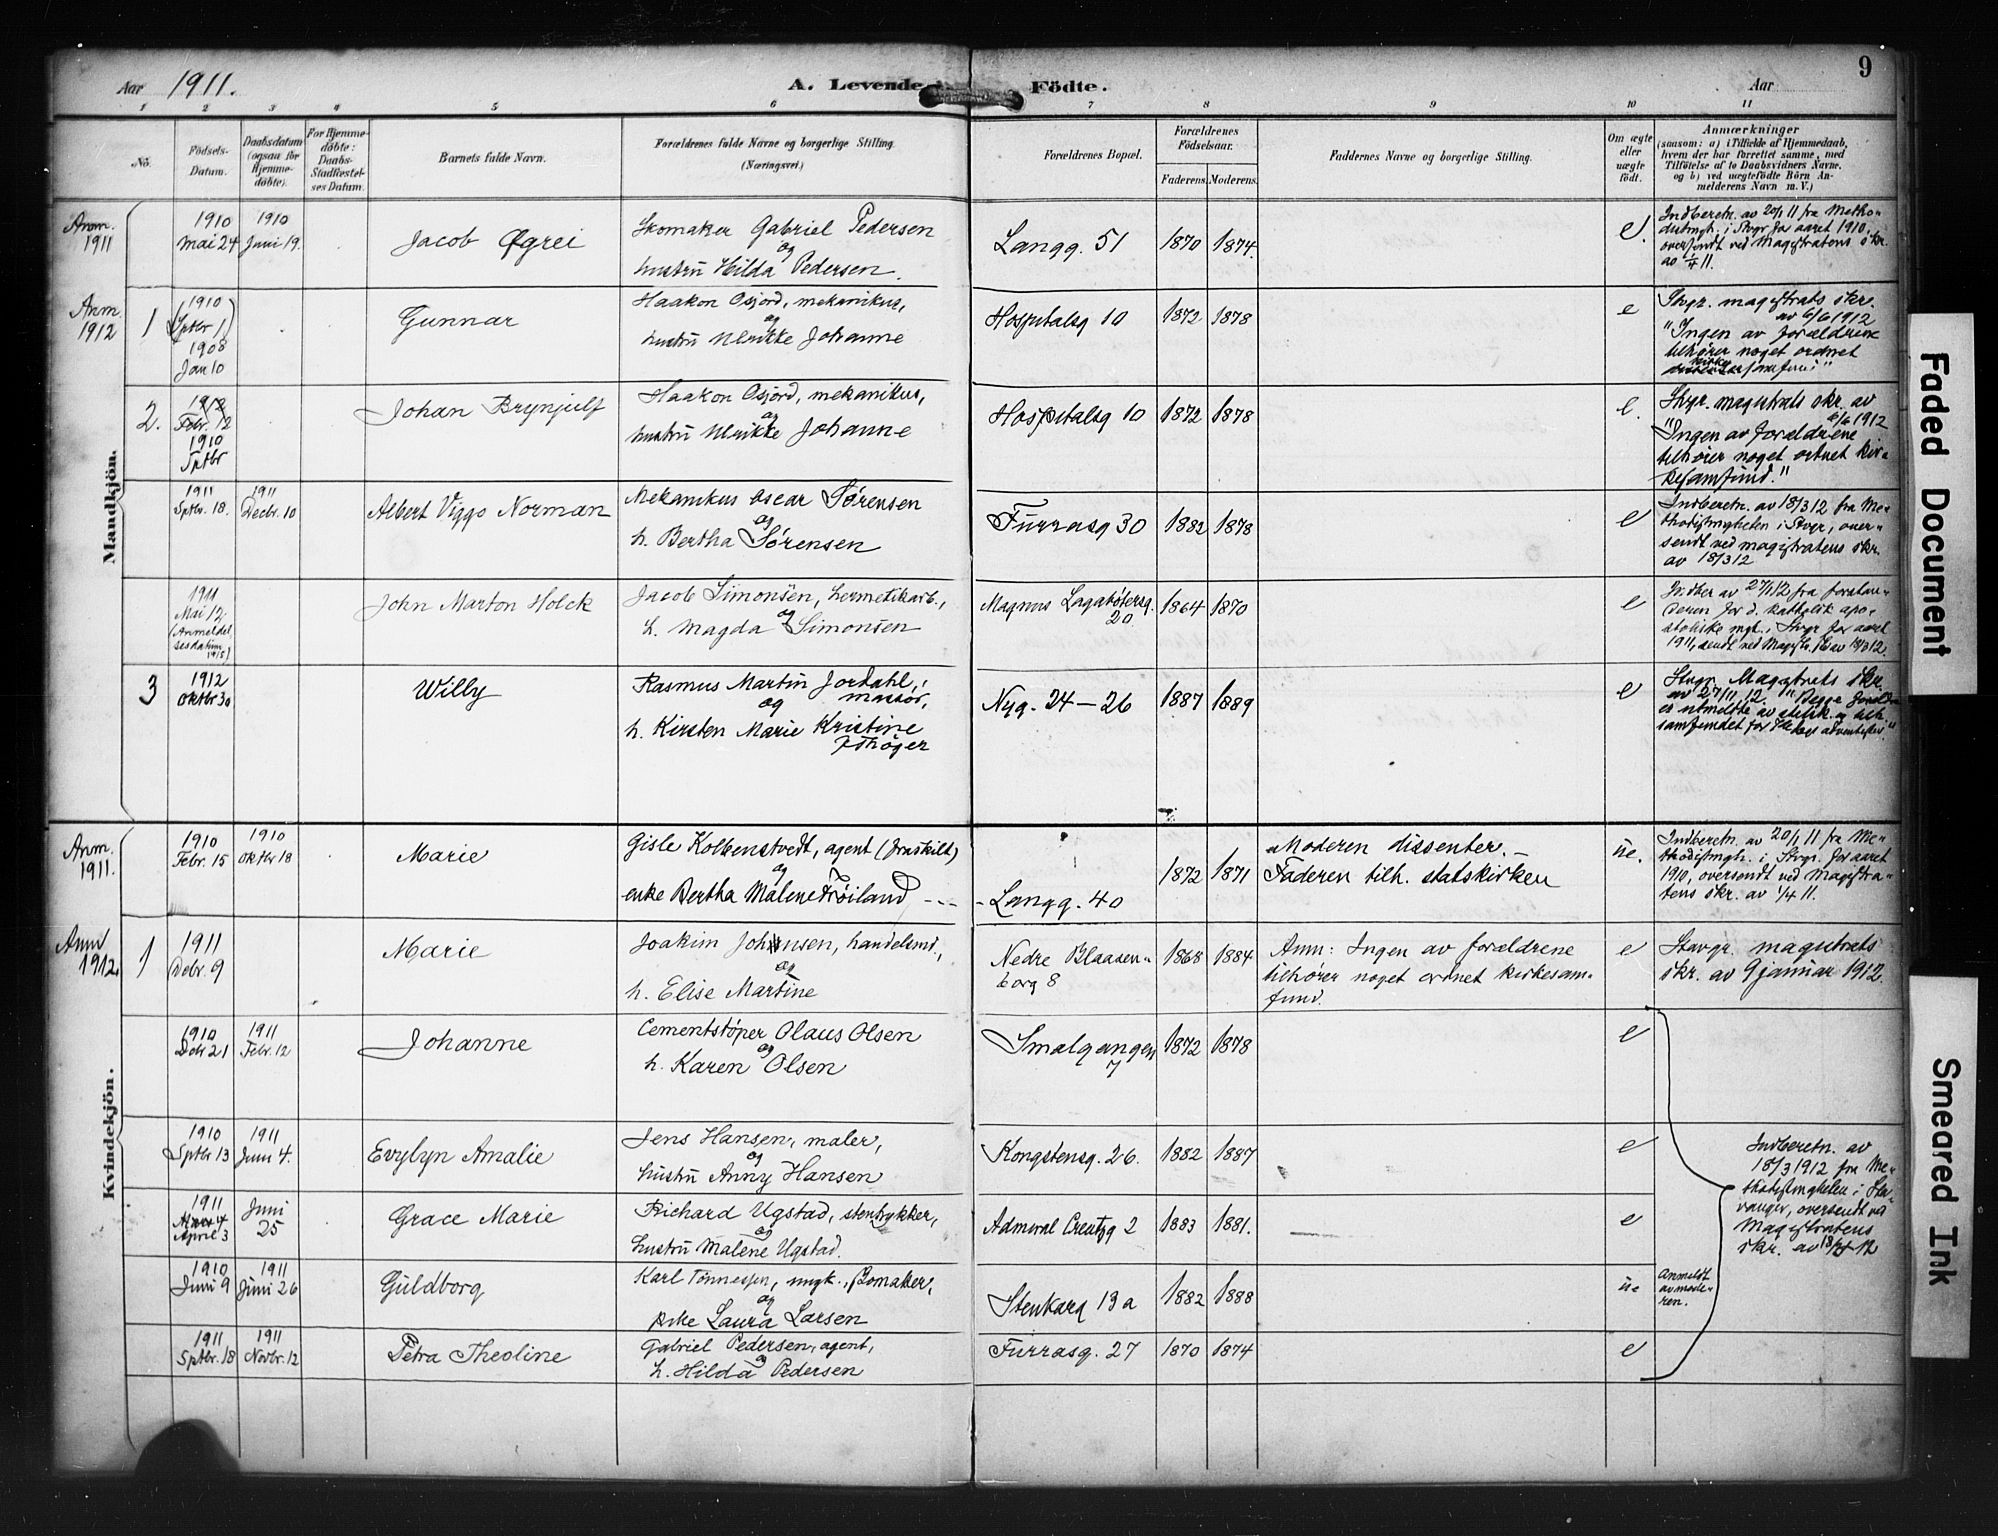 Aar 1911. A. Levende Födte. Aar 9
1 2 3 4 5 6 7 8 9 10 11
No.
Födsels-
Datum.
Daabsdatum
(ogsaa för
Hjemme-
döbte).
For Hjemme-
döbte:
Daabs-
Stadfæstel-
ses Datum.
Barnets fulde Navn.
Forældrenes fulde Navne og borgerlige Stilling.
(Næringsvei.)
Forældrenes Bopæl.
Forældrenes
Födselsaar.
Faderens. Moderens.
Faddernes Navne og borgerlige Stilling.
Om ægte
eller
uægte
födt.
Anmærkninger
(saasom: a) i Tilfælde af Hjemmedaab,
hvem der har forrettet samme, med
Tilföielse af to Daabsvidners Navne,
og b) ved uægtefödte Börn An-
melderens Navn m. V.)
Mandkjön.
Anm.
1911
1910
Mai 24
1910
Juni 19.
Jacob Øgrei
Skomaker Gabriel Pedersen
og
hustru Hilda Pedersen.
Langg. 51
1870 1874.
e.
Indberetn. av 20/1 11 fra Metho-
distmgh. i Stvgr for aaret 1910,
oversendt ved Magistratens skr.
av 1/4 11.
Anm.
1912
1
(1910
Sptbr 1)
1908
Jan 10
Gunnar
Haakon Osjord, mekanikus,
og
hustru Ulrikke Johanne
Hospitalsg 10
1872 1878
e
Stvgr. magistrats skr.
av 6/6 1912
"Ingen av forældrene
tilhører noget ordnet
kirke
samfun"
2.
1912
Febr. 12
1910
Sptbr
Johan Brynjulf
Haakon Osjord, mekanikus,
og
hustru Ulrikke Johanne
Hospitalsg 10
1872 1878
e.
Stvgr. magistrats skr. av
6/6 1912
"Ingen av forældrene
tilhører noget ordnet kir-
kesamfund."
1911
Sptbr. 18.
1911
Decbr. 10
Albert Viggo Norman
Mekanikus Oscar Sørensen
og
h. Bertha Sørensen
Furrasg 30
1882 1878
e
Indberetn. av 18/3 12 fra Me-
thodistmgheten i Stvgr, over-
sendt ved magistratens skr.
av 18/3 12
1911
Mai 12.
(Anmeldel
sesdatum
1915)
John Marton Holck
Jacob Simonsen, hermetikarb.,
og
h. Magda Simonsen
Magnus Lagabøtersg.
20
1864 1870
e
Indber av 27/1 12 fra forstan-
deren for d. katholik apo-
stoliske mgt. i Stvgr for aaret
1911, sendt ved Magistr. skr av
3
1912
Oktbr 30
Willy
Rasmus Martin Jordahl,
massør,
og
h. Kirsten Marie Kristine
Nyg. 24 – 26
1887 1889
e
Stvgr. Magistrats skr.
av 27/11 12. "Begge
er utmeldte av statsk. og tilh.
samfundet for adventister."
Kvindekjön.
Anm.
1911.
1910
Febr. 15
1910
Oktbr 18
Marie
Gisle Kolbenstvedt, agent (fraskilt)
og
enke Bertha Malene Frøiland - - -
- Langg. 40
1872 1871
Moderen dissenter. –
Faderen tilh. statskirken
ue.
Indberetn. av 20/1 11 fra Me-
thodistmgh. i Stvgr. for aaret
1910, oversendt ved Magistra-
tens skr. av 1/4 11.
Anm
1912.
1
1911
Dcbr. 9
Marie
Joakim Johnsen, handelsmd.,
og
h. Elise Martine
Nedre Blaasen-
borg 8
1868 1884
Anm: Ingen av forældrene
tilhører noget ordnet kirkesam-
fund.
e
Stavgr. magistrats
skr. av 9 januar 1912.
1910
Dcbr 21
1911
Febr. 12
Johanne
Cementstøper Olaus Olsen
og
h. Karen Olsen
Smalgangen
7
1872 1878
e
1910
Sptbr 13
1911
Juni 4.
Evylyn Amalie
Jens Hansen, maler,
og
hustru Anny Hansen
Kongstensg. 26.
1882 1887
e
Indberetn. av
18/3 1912 fra Me-
thodistmgheten i Sta-
vanger, oversendt ved
Magistratens
skr. av 18/3 12
1911
April 3
Juni
25
Grace Marie
Richard Ugstad, stentrykker,
og
hustru Malene Ugstad.
Admiral Creutzg 2
1883 1881.
e
1910
Juni 9
1911
Juni 26
Guldborg
Karl Tønnessen, ungk., skomaker,
og
pike Laura Larsen
Stenkarg 13 a
1882 1888
ue
Anmeldt
av mode-
ren.
1911
Sptbr. 18
1911
Novbr. 12
Petra Theoline
Gabriel Pedersen, agent,
og
h. Hilda Pedersen
Furrasg. 27
1870 1874
e
Faded Document
Smeared Ink